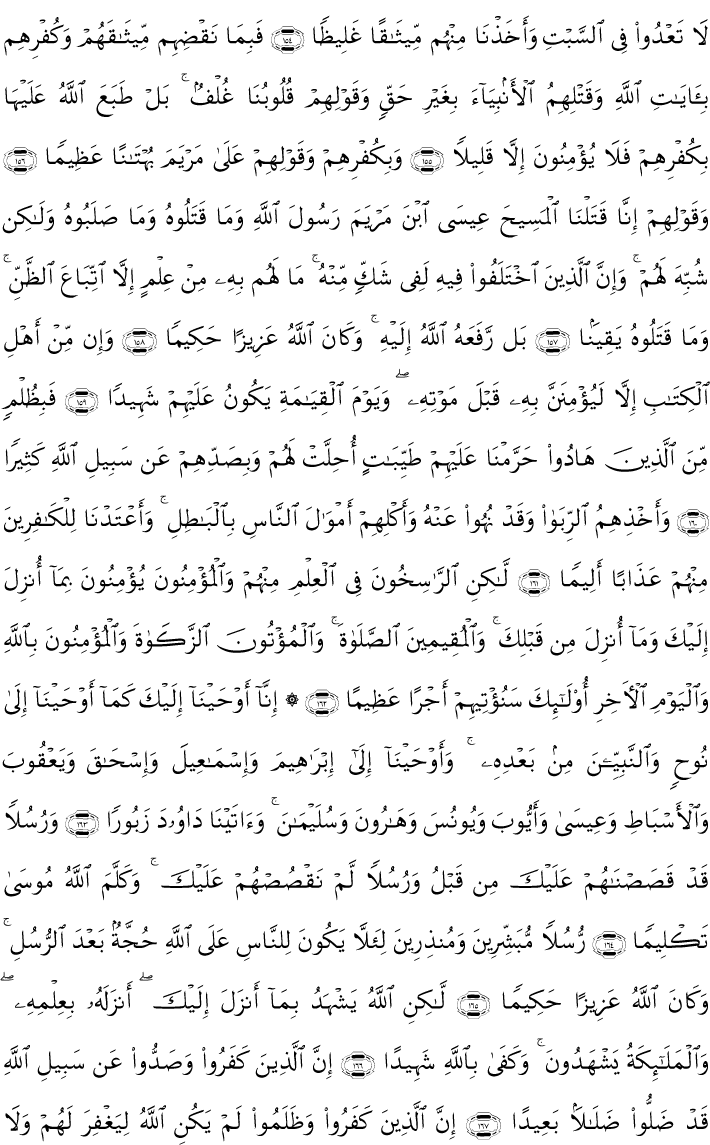 لَا تَعْدُوا۟ فِى ٱلسَّبْتِ وَأَخَذْنَا مِنْهُم مِّيثَـٰقًا غَلِيظًا ﴿١٥٤﴾ فَبِمَا نَقْضِهِم مِّيثَـٰقَهُمْ وَكُفْرِهِم
بِـَٔايَـٰتِ ٱللَّهِ وَقَتْلِهِمُ ٱلْأَنۢبِيَآءَ بِغَيْرِ حَقٍّ وَقَوْلِهِمْ قُلُوبُنَا غُلْفٌۢ ۚ بَلْ طَبَعَ ٱللَّهُ عَلَيْهَا
بِكُفْرِهِمْ فَلَا يُؤْمِنُونَ إِلَّا قَلِيلًا ﴿١٥٥﴾ وَبِكُفْرِهِمْ وَقَوْلِهِمْ عَلَىٰ مَرْيَمَ بُهْتَـٰنًا عَظِيمًا ﴿١٥٦﴾
وَقَوْلِهِمْ إِنَّا قَتَلْنَا ٱلْمَسِيحَ عِيسَى ٱبْنَ مَرْيَمَ رَسُولَ ٱللَّهِ وَمَا قَتَلُوهُ وَمَا صَلَبُوهُ وَلَـٰكِن
شُبِّهَ لَهُمْ ۚ وَإِنَّ ٱلَّذِينَ ٱخْتَلَفُوا۟ فِيهِ لَفِى شَكٍّ مِّنْهُ ۚ مَا لَهُم بِهِۦ مِنْ عِلْمٍ إِلَّا ٱتِّبَاعَ ٱلظَّنِّ ۚ
وَمَا قَتَلُوهُ يَقِينًۢا ﴿١٥٧﴾ بَل رَّفَعَهُ ٱللَّهُ إِلَيْهِ ۚ وَكَانَ ٱللَّهُ عَزِيزًا حَكِيمًا ﴿١٥٨﴾ وَإِن مِّنْ أَهْلِ
ٱلْكِتَـٰبِ إِلَّا لَيُؤْمِنَنَّ بِهِۦ قَبْلَ مَوْتِهِۦ ۖ وَيَوْمَ ٱلْقِيَـٰمَةِ يَكُونُ عَلَيْهِمْ شَهِيدًا ﴿١٥٩﴾ فَبِظُلْمٍ
مِّنَ ٱلَّذِينَ هَادُوا۟ حَرَّمْنَا عَلَيْهِمْ طَيِّبَـٰتٍ أُحِلَّتْ لَهُمْ وَبِصَدِّهِمْ عَن سَبِيلِ ٱللَّهِ كَثِيرًا
﴿١٦٠﴾ وَأَخْذِهِمُ ٱلرِّبَوٰا۟ وَقَدْ نُهُوا۟ عَنْهُ وَأَكْلِهِمْ أَمْوَٰلَ ٱلنَّاسِ بِٱلْبَـٰطِلِ ۚ وَأَعْتَدْنَا لِلْكَـٰفِرِينَ
مِنْهُمْ عَذَابًا أَلِيمًا ﴿١٦١﴾ لَّـٰكِنِ ٱلرَّٰسِخُونَ فِى ٱلْعِلْمِ مِنْهُمْ وَٱلْمُؤْمِنُونَ يُؤْمِنُونَ بِمَآ أُنزِلَ
إِلَيْكَ وَمَآ أُنزِلَ مِن قَبْلِكَ ۚ وَٱلْمُقِيمِينَ ٱلصَّلَوٰةَ ۚ وَٱلْمُؤْتُونَ ٱلزَّكَوٰةَ وَٱلْمُؤْمِنُونَ بِٱللَّهِ
وَٱلْيَوْمِ ٱلْـَٔاخِرِ أُو۟لَـٰٓئِكَ سَنُؤْتِيهِمْ أَجْرًا عَظِيمًا ﴿١٦٢﴾ ۞ إِنَّآ أَوْحَيْنَآ إِلَيْكَ كَمَآ أَوْحَيْنَآ إِلَىٰ
نُوحٍ وَٱلنَّبِيِّـۧنَ مِنۢ بَعْدِهِۦ ۚ وَأَوْحَيْنَآ إِلَىٰٓ إِبْرَٰهِيمَ وَإِسْمَـٰعِيلَ وَإِسْحَـٰقَ وَيَعْقُوبَ
وَٱلْأَسْبَاطِ وَعِيسَىٰ وَأَيُّوبَ وَيُونُسَ وَهَـٰرُونَ وَسُلَيْمَـٰنَ ۚ وَءَاتَيْنَا دَاوُۥدَ زَبُورًا ﴿١٦٣﴾ وَرُسُلًا
قَدْ قَصَصْنَـٰهُمْ عَلَيْكَ مِن قَبْلُ وَرُسُلًا لَّمْ نَقْصُصْهُمْ عَلَيْكَ ۚ وَكَلَّمَ ٱللَّهُ مُوسَىٰ
تَكْلِيمًا ﴿١٦٤﴾ رُّسُلًا مُّبَشِّرِينَ وَمُنذِرِينَ لِئَلَّا يَكُونَ لِلنَّاسِ عَلَى ٱللَّهِ حُجَّةٌۢ بَعْدَ ٱلرُّسُلِ ۚ
وَكَانَ ٱللَّهُ عَزِيزًا حَكِيمًا ﴿١٦٥﴾ لَّـٰكِنِ ٱللَّهُ يَشْهَدُ بِمَآ أَنزَلَ إِلَيْكَ ۖ أَنزَلَهُۥ بِعِلْمِهِۦ ۖ
وَٱلْمَلَـٰٓئِكَةُ يَشْهَدُونَ ۚ وَكَفَىٰ بِٱللَّهِ شَهِيدًا ﴿١٦٦﴾ إِنَّ ٱلَّذِينَ كَفَرُوا۟ وَصَدُّوا۟ عَن سَبِيلِ ٱللَّهِ
قَدْ ضَلُّوا۟ ضَلَـٰلًۢا بَعِيدًا ﴿١٦٧﴾ إِنَّ ٱلَّذِينَ كَفَرُوا۟ وَظَلَمُوا۟ لَمْ يَكُنِ ٱللَّهُ لِيَغْفِرَ لَهُمْ وَلَا